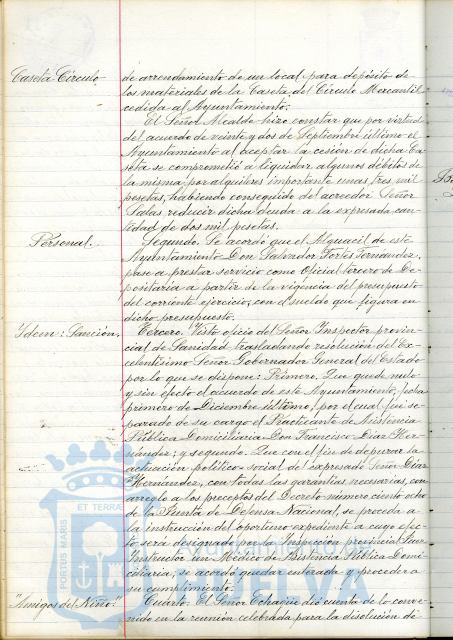 Caseta Círculo
de arrendamiento de un local para depósito de
los materiales de la Caseta del Círculo Mercantil
cedida al Ayuntamiento.
El Señor Alcalde hizo constar que por virtud
del acuerdo de veinte y dos de Septiembre último el
Ayuntamiento al aceptar la cesión de dicha Ca-
seta se comprometió a liquidar algunos débitos de
la misma por alquileres importante unas tres mil
pesetas, habiendo conseguido del acreedor Señor
Salas reducir dicha deuda a la expresada can-
tidad de dos mil pesetas.
Personal.
Segundo. Se acordó que el Alguacil de este
Ayuntamiento Don Salvador Fortes Fernandez,
pase a prestar servicio como Oficial tercero de De-
positaria a partir de la vigencia del presupuesto
del corriente ejercicio, con el sueldo que figura en
dicho presupuesto.
Ydem: Sanción.
Tercero. Visto oficio del Señor Inspector provin-
cial de Sanidad trasladando resolución del Ex-
celentísimo Señor Gobernador General del Estado
por lo que se dispone: Primero. Que quede nulo
y sin efecto el acuerdo de este Ayuntamiento, fecha
primero de Diciembre último, por el cual fué se-
parado de su cargo el Practicante de Asistencia
Pública Domiciliaria Don Francisco Diaz Her-
nández; y segundo. Que con el fin de depurar la
actuación político-social del expresado Señor Diaz
Hernández, con todas las garantías necesarias, con
arreglo a los preceptos del Decreto número ciento ocho
de la Junta de Defensa Nacional, se proceda a
la instrucción del oportuno expediente a cuyo efec-
to será designado por la Inspección provincial Juez
Instructor un Médico de Asistencia Pública Domi-
ciliaria, se acordó quedar enterada y proceder a
su cumplimiento.
"Amigos del Niño."
Cuarto. El Señor Echagüe dió cuenta de lo conve-
nido en la reunión celebrada para la disolución de
PORTUS MARIS
ET TERRAE